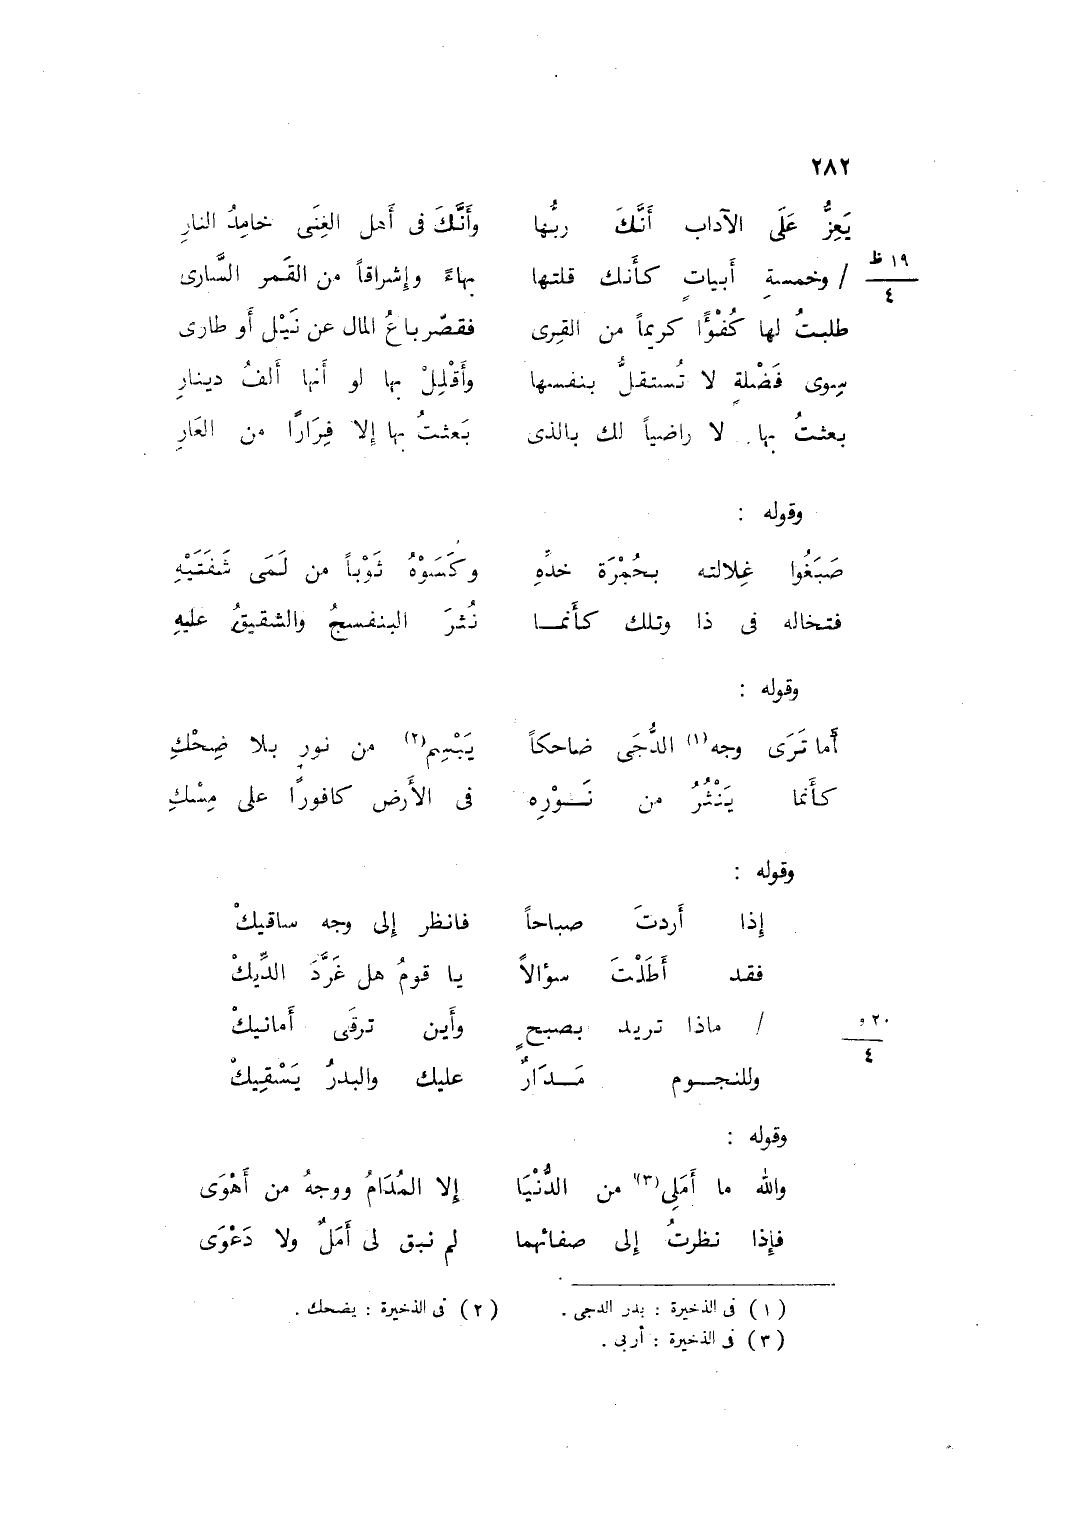 ٢٨٢
يَعِزُّ عَلَى الآداب أَنَّكَ ربُّها وأَنَّكَ فى أهل الغِنَى خامِدُ النارِ
١٩ ظ
/ وخمسةِ أبياتٍ كأنك قلتها بهاءً وإشراقاً من القَمر السَّارى
٤
طلبتُ لها كُفْؤًا كريماً من القِرى فقصّر باعُ المال عن نَيْل أو طارى
سِوى فَضْلةٍ لا تُستقلُّ بنفسها وأَقْلِلْ بها لو أنها ألفُ دينارِ
بعثتُ بها لا راضياً لك بالذى بَعثتُ بها إلا فِرَارًا من العَارِ
وقوله :
صَبَغُوا غِلالته بحُمْرَة خدِّهِ وكَسَوْهُ ثَوْباً من لَمَى شَفَتَيْهِ
فتخاله فى ذا وتلك كأنمــا نُثرَ البنفسجُ والشقيقُ عليهِ
وقوله :
أما تَرَى وجه(١) الدُّجَى ضاحكاً يَبْسِم(٢) من نورٍ بلا ضِحْكِ
كأنما يَنْثُرُ من نَــوْرِه فى الأرض كافورًا على مِسْكِ
وقوله :
إذا أردتَ صباحاً فانظر إلى وجه ساقيكْ
فقد أَطَلْتَ سؤالاً يا قومُ هل غَرَّدَ الدِّيكْ
٢٠ و
/ ماذا تريد بصبحٍ وأين ترقَى أمانيكْ
٤
وللنجــوم مَــدَارٌ عليك والبدرُ يَسْقِيكْ
وقوله :
والله ما أَمَلِى(٣) من الدُّنْيَا إلا المُدَامُ ووجهُ من أَهْوَى
فإذا نظرتُ إلى صفاتهما لم نبق لى أَمَلٌ ولا دَعْوَى
(١) فى الذخيرة : بدر الدجى . (٢) فى الذخيرة : يضحك .
(٣) فى الذخيرة : أربى .